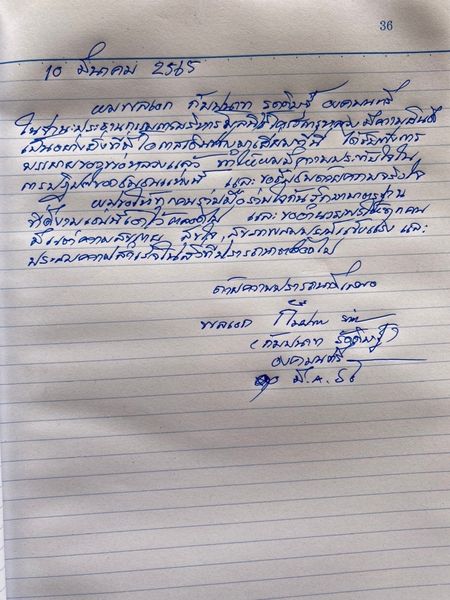 36
10 มีนาคม 2565
ผมพลเอก กัมปนาท รุดดิษฐ์ องคมนตรี
ในฐานะประธานกรรมการบริหารมูลนิธิ มีความยินดี
เป็นอย่างยิ่งที่มีโอกาสเดินทางมา ได้รับฟังการ
บรรยายของ แล้ว ทำให้ผมมีความประทับใจใน
การปฏิบัติของ และขอชื่นชมความตั้งใจ
ผมขอให้ทุกคนร่วมมือร่วมใจกันรักษามาตรฐาน
ที่ดีงาม ไว้ตลอดไป และขออำนวยพรให้ทุกคน
มีแต่ความสุขกาย สุขใจ สุขภาพสมบูรณ์แข็งแรง และ
ประสบความสำเร็จในสิ่งที่ปรารถนาตลอดไป
ด้วยความปรารถนาดี
พลเอก กัมปนาท
(กัมปนาท รุดดิษฐ์)
องคมนตรี
มี.ค.